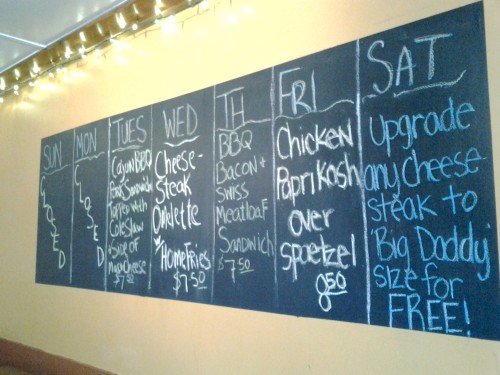 SUN
CLOSED
MON
CLOSED
TUES
Cajun BBQ
Pork Sandwich
Topped with
Coleslaw
+ Side of
Mac n Cheese
$7.50
WED
Cheese-
Steak
Omelette
w/
Home Fries
$7.50
TH
BBQ
Bacon +
Swiss
Meatloaf
Sandwich
$7.50
FRI
Chicken
Paprikosh
over
Spaetzel
8.50
SAT
Upgrade
any cheese-
steak to
'Big Daddy'
size for
FREE!